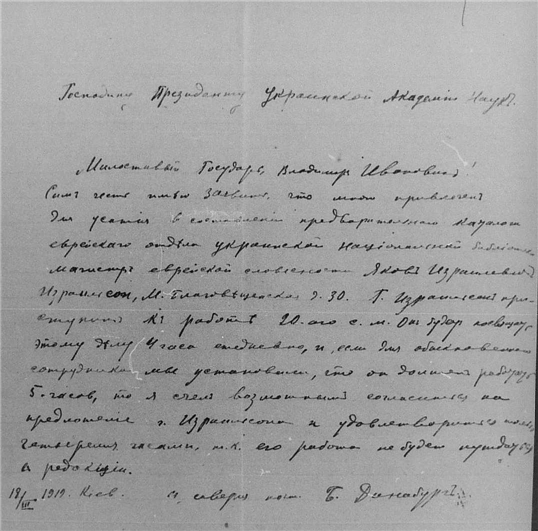 Господину Президенту Украинской Академіи Наукъ.
Милостивый Государь, Владиміръ Ивановичъ!
Симъ честь имѣю заявить, что мною привлеченъ
для участія в составленіи предварительнаго каталога
еврейскаго отдѣла украинской національной библіотеки
магистръ еврейской словесности Яковъ Израилевичъ
Израильсон, М. Благовѣщенская д. 30. Г. Израильсон при-
ступилъ къ работѣ 20-ого с. м. Он будет посвящать
этому дѣлу 4 часа ежедневно, и, если для обыкновеннаго
сотрудника мы установили, что он долженъ работать
5 часов, то я счелъ возможнымъ согласиться на
предложеніе г. Израильсона и удовлетвориться
четырьмя часами, т. к. его работа не будет нуждаться
в редакціи.
18/III 1919. Кіев. Б. Динабургъ.